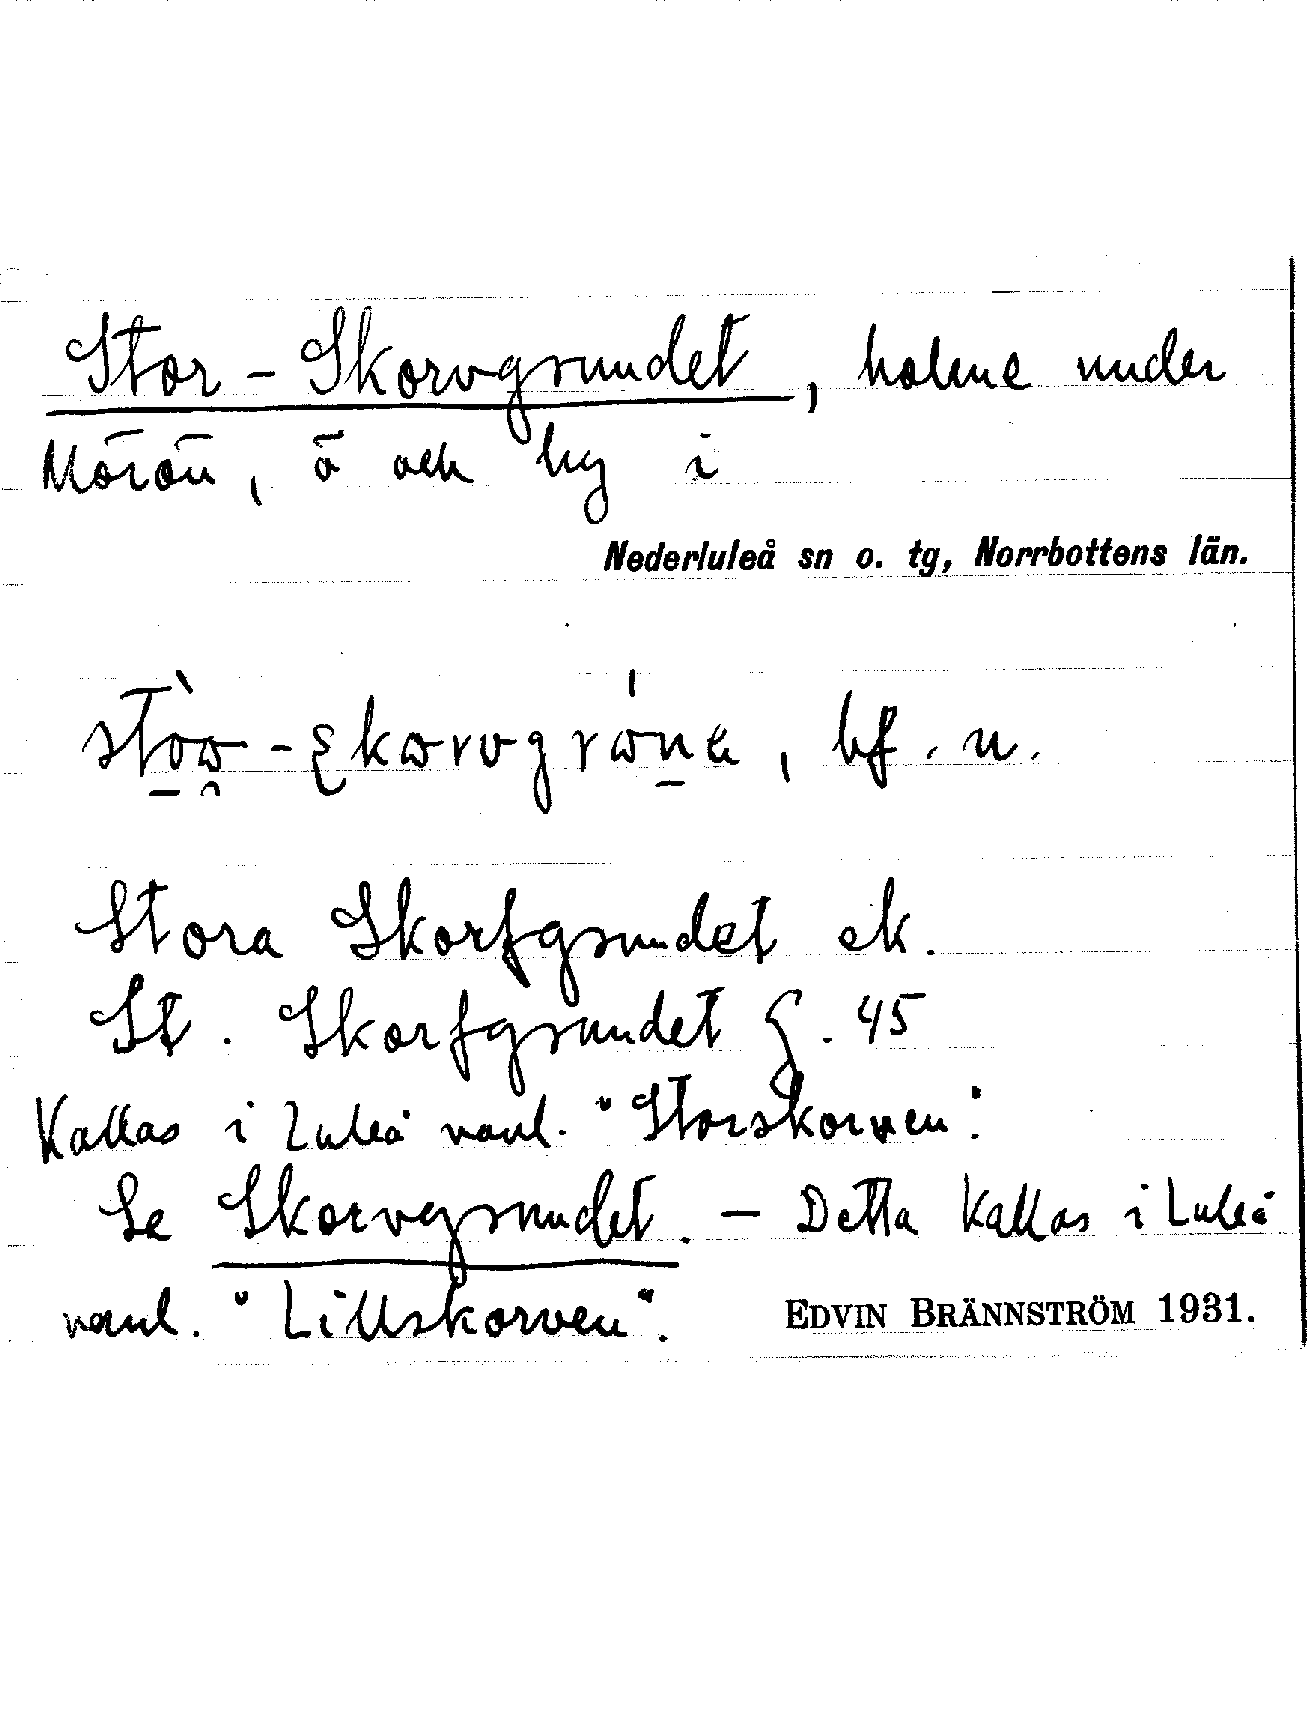 Stor-Skorvgrundet, holme under
Mörön, ö och by i
Nederluleå sn o. tg, Norrbottens län.
bf. n.
Stora Skorfgrundet ek.
St. Skorfgrundet G. 45
Kallas i Luleå vanl. "Storskorven".
Se Skorvgrundet. – Detta kallas i Luleå
vanl. "Lillskorven".
EDVIN BRÄNNSTRÖM 1931.